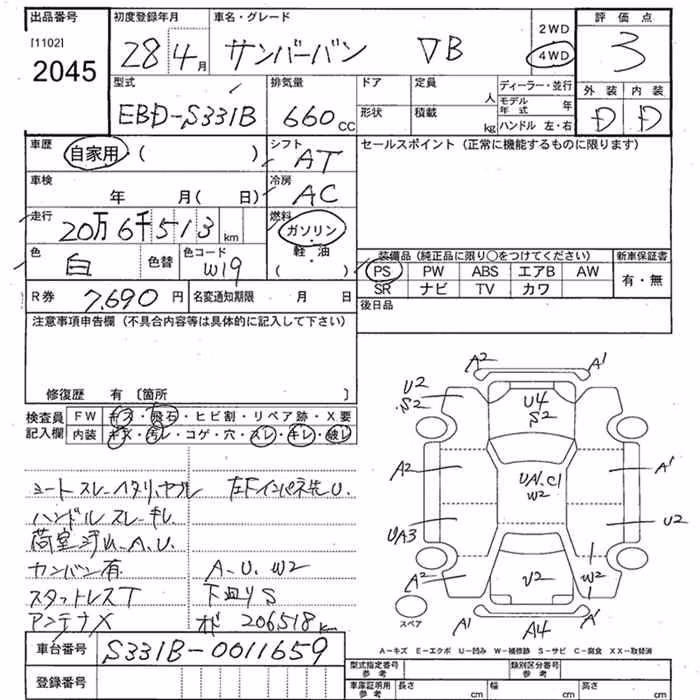 出品番号 初度登録年月 車名・グレード 2WD 評価点
[1102] 28 4月 サンバーバン ▽B 4WD 3
2045
型式 排気量 ドア 定員 人 ディーラー・並行 外装 内装
EBD-S331B 660cc 形状 積載 kg モデル年式 年 D D
ハンドル 左・右
車歴 自家用 ( ) シフト AT セールスポイント (正常に機能するものに限ります)
車検 年 月( 日) 冷房 AC
走行 20万6千513km 燃料 ガソリン・軽油・( )
色 白 色替 色コード W19
装備品 (純正品に限り○をつけてください) 新車保証書
PS PW ABS エアB AW 有・無
SR ナビ TV カワ
R券 7,690円 名変通知期限 月 日 後日品
注意事項申告欄 (不具合内容等は具体的に記入して下さい)
修復歴 有 〔箇所 〕
検査員記入欄 FW キズ・飛石・ヒビ割・リペア跡・X要
内装 キズ・汚レ・コゲ・穴・スレ・キレ・破レ
シートスレ・ヘタリ,ヤブレ
ハンドルスレ・キレ
荷室 A.U.
カンバン有 A.U.W2
スタットレスT 下廻りS
アンテナX 206518km
車台番号 S331B-0011659
登録番号
A2 A1
U2 S2 U4 S2 A1
A2 UA1.C1 W2 A1
UA3 U2
A2 U2 W2
A1 A4 A1
スペア
A-キズ E-エクボ U-凹み W-補修跡 S-サビ C-腐食 XX-取替済
型式指定番号 参考 類別区分番号 参考
車庫証明用 参考 長さ cm 幅 cm 高さ cm